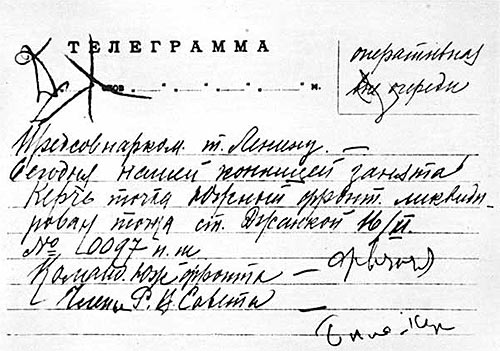 ТЕЛЕГРАММА
оперативная
вне очереди
Предсовнарком. т. Ленину. —
Сегодня нашей конницей занята
Керчь точка Южный фронт ликвиди-
рован точка ст. Джанкой 16/XI
№ 0097 п. ш
Команд. Южфронта — Фрунзе
Члены Р. В. Совета —
Бела-Кун